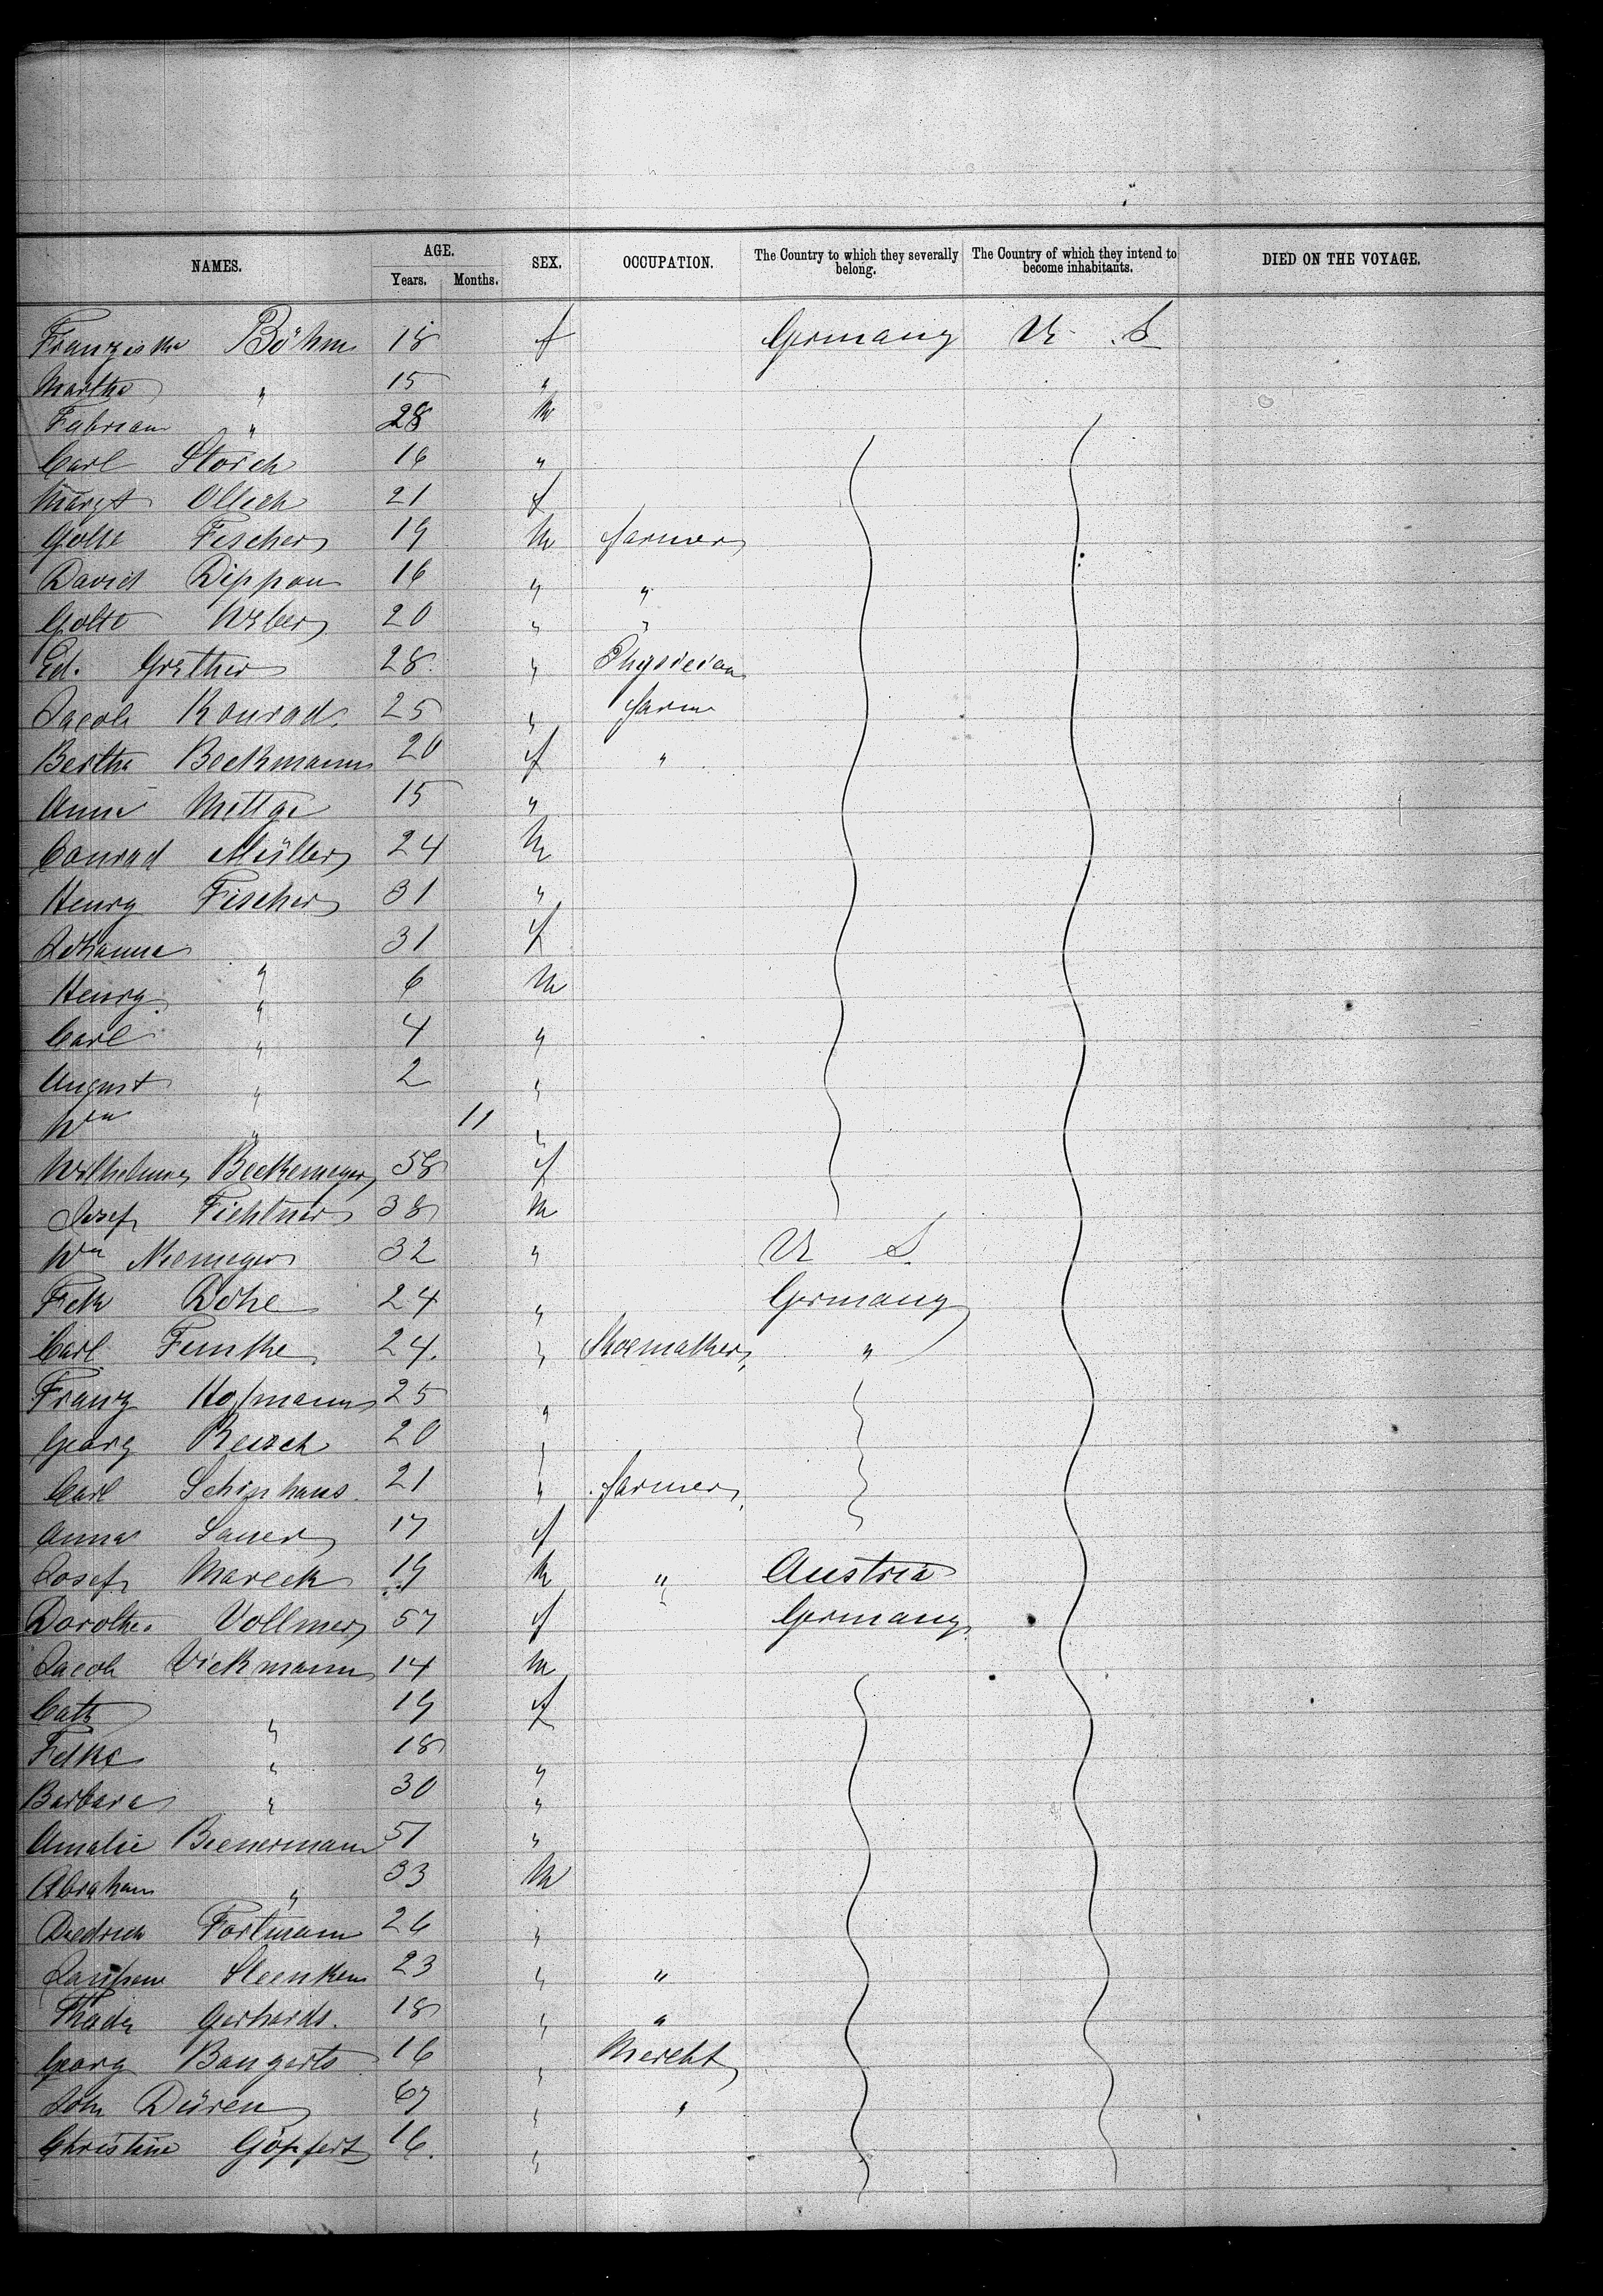 NAMES. AGE. Years. Months. SEX. OCCUPATION. The Country to which they severally belong. The Country of which they intend to become inhabitants. DIED ON THE VOYAGE.
Franziska Böhm 18 f Germany U. S
Martha " 15 "
Fabrian " 28 M
Carl Storch 16 "
Margt Ollich 21 f
Gottl Fischer 19 M farmer
David Dippon 16 " "
Gottl Weber 20 " "
Ed. Grether 28 " Physician
Jacob Konrad 25 " farm
Bertha Beckmann 20 f "
Anna Mettge 15 "
Conrad Müller 24 M
Henry Fischer 31 "
Johanne " 31 f
Henry " 6 M
Carl " 4 "
August " 2 "
Wm " 11 "
Wilhelmine Beckemeyer 58 f
Josef Fichtner 38 M
Wm Niemeyer 32 " U S
Fch Dohe 24 " Germany
Carl Femke 24. " Shoemaker "
Franz Hofmann 25 "
Georg Reisch 20 "
Carl Schinhaus 21 " farmer
Anna Sauer 17 f
Josef Mareck 19 M " Austria
Dorothea Vollmer 57 f " Germany
Jacob Vickmann 14 M
Cath " 19 f
Fdke " 18 "
Barbara " 30 "
Amalie Bienermann 51 "
Abraham " 33 M
Diedrich Fortmann 26 "
Steenken 23 " "
Gerhards. 18 " "
Georg Bangerts 16 " Mercht
Joh Düren 67 " "
Christine Göpfert 16. "